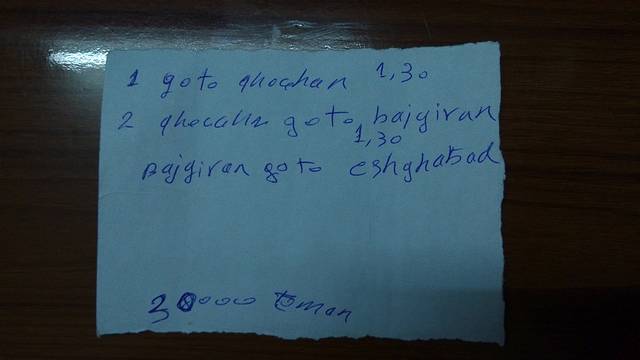 1 goto qhochan 1,30
2 qhocahn goto bajgiran
1,30
Bajgiran goto eshghabad
30000 toman